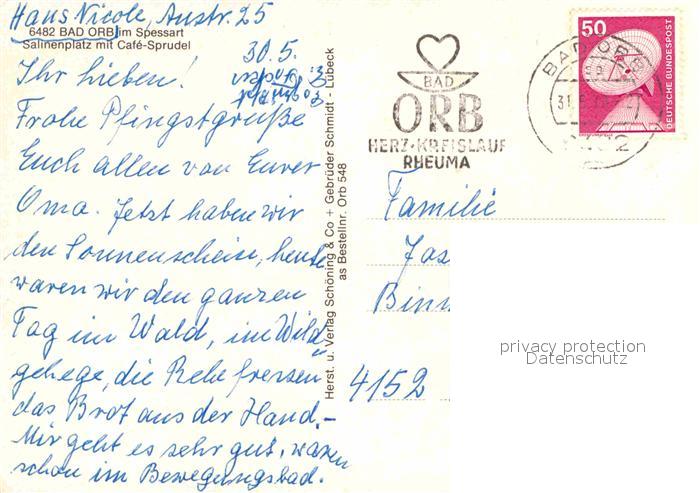 Haus Nicole, Austr. 25
6482 BAD ORB im Spessart
Salinenplatz mit Café-Sprudel
30.5.
Ihr Lieben!
Frohe Pfingstgrüße
Euch allen von Eurer
Oma. Jetzt haben wir
den Sonnenschein, heute
waren wir den ganzen
Tag im Wald, im Wild
gehege, die Rehe fressen
das Brot aus der Hand.-
Mir geht es sehr gut, waren
schon im Bewegungsbad.
Herst. u. Verlag Schöning & Co + Gebrüder Schmidt - Lübeck
as Bestellnr. Orb 548
BAD
ORB
HERZ-KREISLAUF
RHEUMA
BAD ORB
50
DEUTSCHE BUNDESPOST
Familie
Jos
Binn
4152
privacy protection
Datenschutz